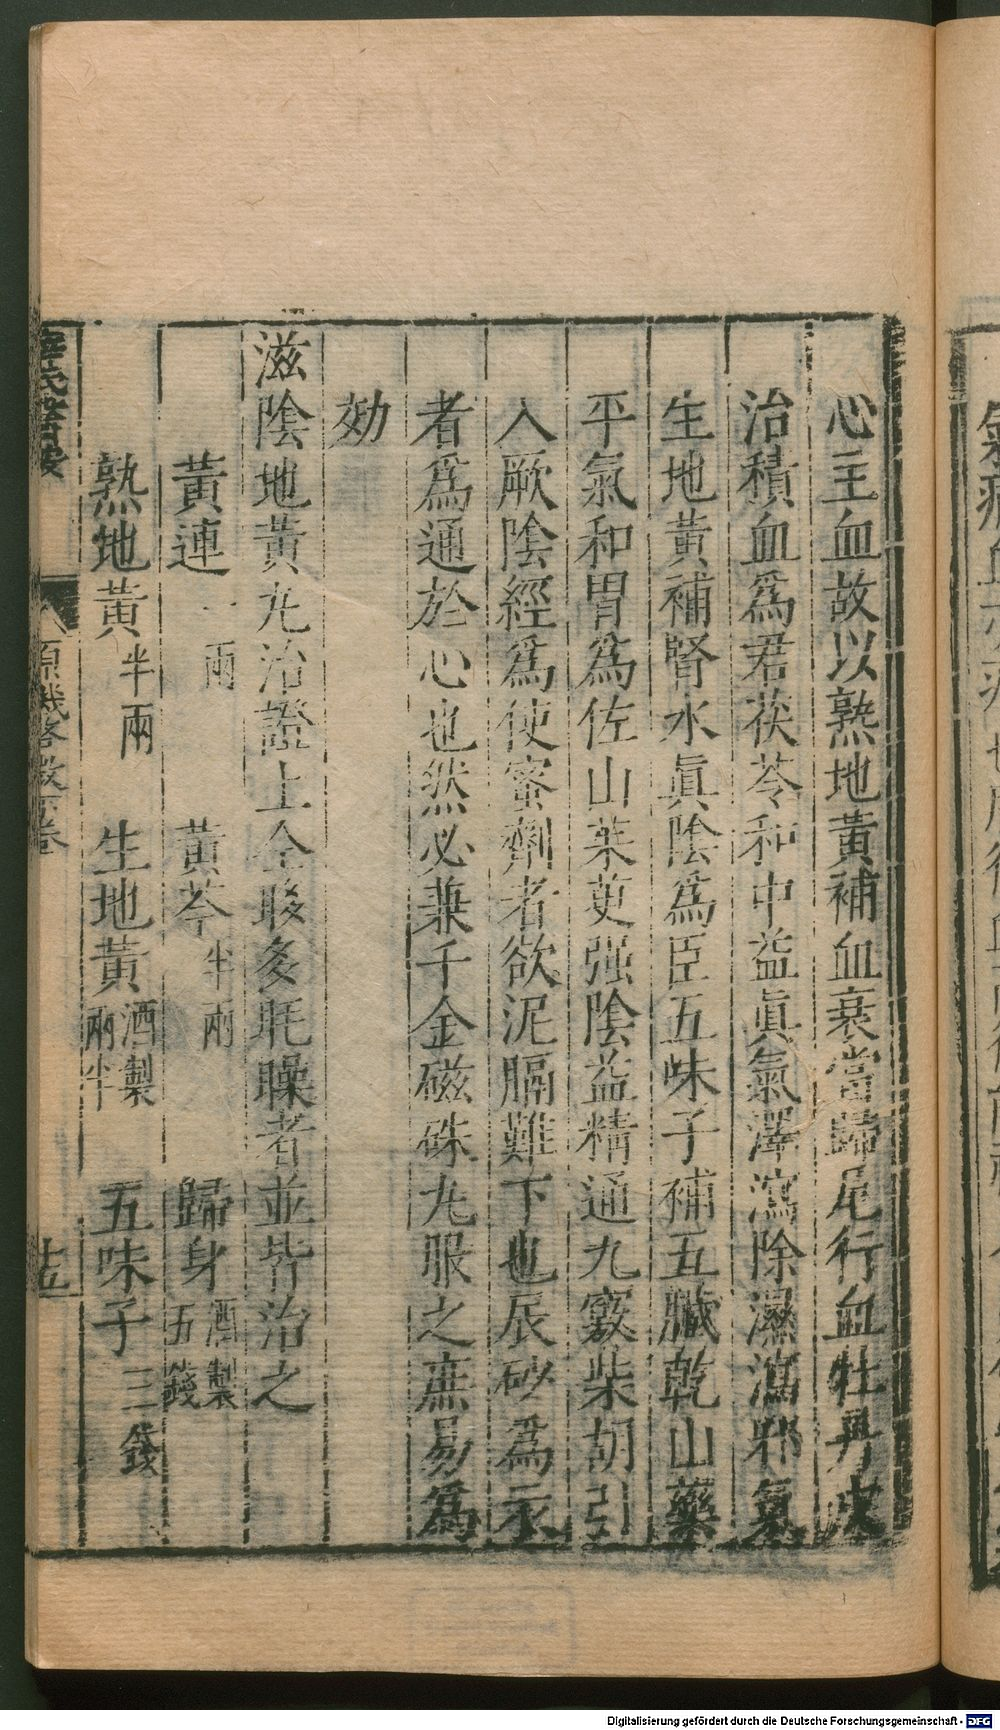 心主血故以熟地黃補血衰當歸尾行血牡丹皮
治積血爲君茯苓和中益眞氣澤瀉除濕瀉邪氣
生地黃補腎水眞陰爲臣五味子補五臟乾山藥
平氣和胃爲佐山茱萸强陰益精通九竅柴胡引
入厥陰經爲使蜜劑者欲泥膈難下也辰砂爲衣
者爲通於心也然必兼千金磁硃丸服之庶易爲
効
滋陰地黃丸治證上仝眵多眊矂者並皆治之
黃連一兩 黃芩半兩 歸身酒製五錢
熟地黃半兩 生地黃酒製兩半 五味子三錢
薛氏醫按 原機啓微下卷 十五
Digitalisierung gefördert durch die Deutsche Forschungsgemeinschaft - DFG